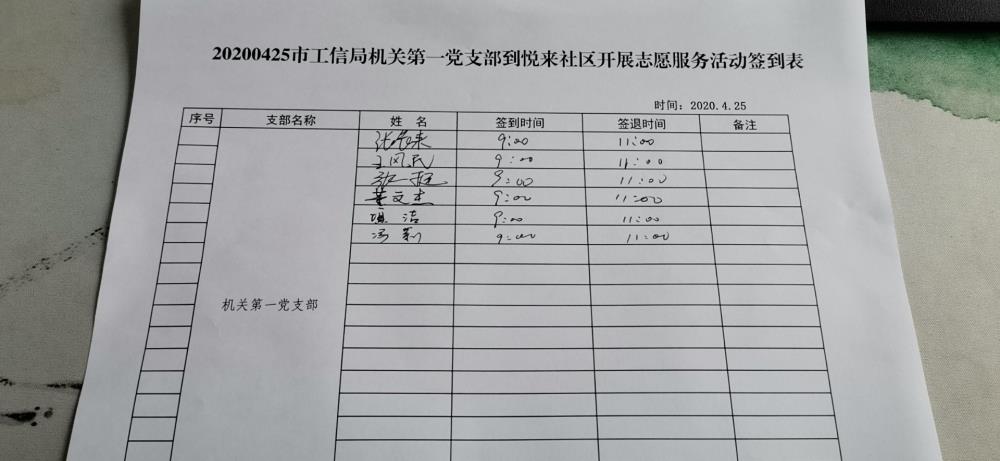 20200425市工信局机关第一党支部到悦来社区开展志愿服务活动签到表
时间：2020.4.25
序号 支部名称 姓 名 签到时间 签退时间 备注
9:00 11:00
王风民 9:00 11:00
9:00 11:00
董文杰 9:00 11:00
洁 9:00 11:00
冯莉 9:00 11:00
机关第一党支部